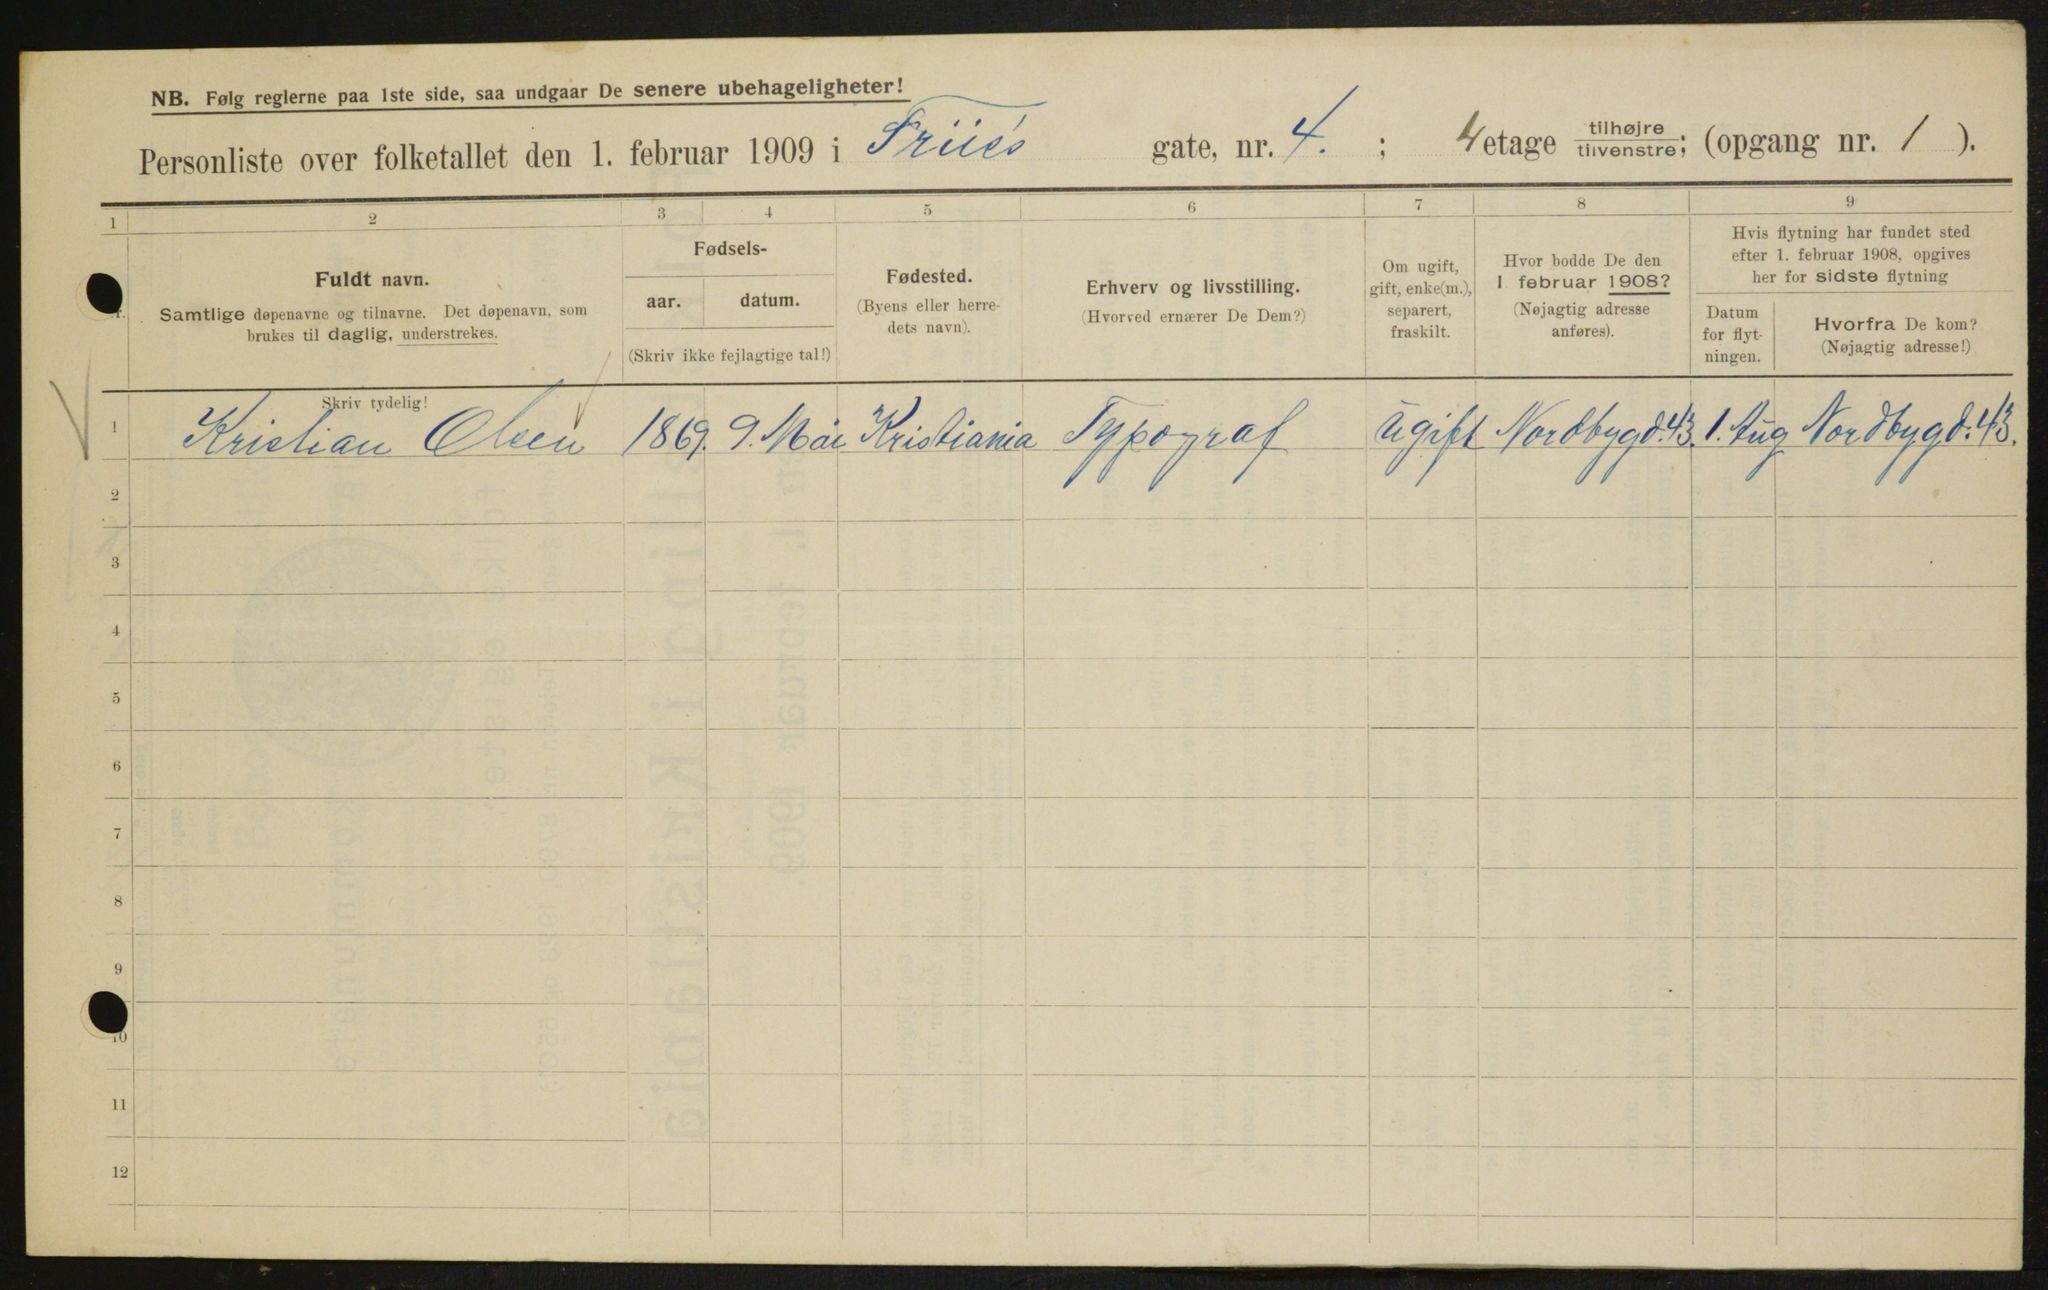 NB. Følg reglerne paa 1ste side, saa undgaar De senere ubehageligheter!
Personliste over folketallet den 1. februar 1909 i Friis's gate, nr. 4. ; 4 etage tilhøjre tilvenstre; (opgang nr. 1 ).
1 2 3 4 5 6 7 8 9
Fuldt navn.
Samtlige døpenavne og tilnavne. Det døpenavn, som
brukes til daglig, understrekes.
Skriv tydelig!
Fødsels-
aar. datum.
(Skriv ikke fejlagtige tal!)
Fødested.
(Byens eller herre-
dets navn).
Erhverv og livsstilling.
(Hvorved ernærer De Dem?)
Om ugift,
gift, enke(m.),
separert,
fraskilt.
Hvor bodde De den
1. februar 1908?
(Nøjagtig adresse
anføres).
Hvis flytning har fundet sted
efter 1. februar 1908, opgives
her for sidste flytning
Datum
for flyt-
ningen.
Hvorfra De kom?
(Nøjagtig adresse!)
1 Kristian Olsen 1869. 9. Mai Kristiania Typograf ugift Nordbygd. 43. 1. Aug Nordbygd. 43.
2
3
4
5
6
7
8
9
10
11
12